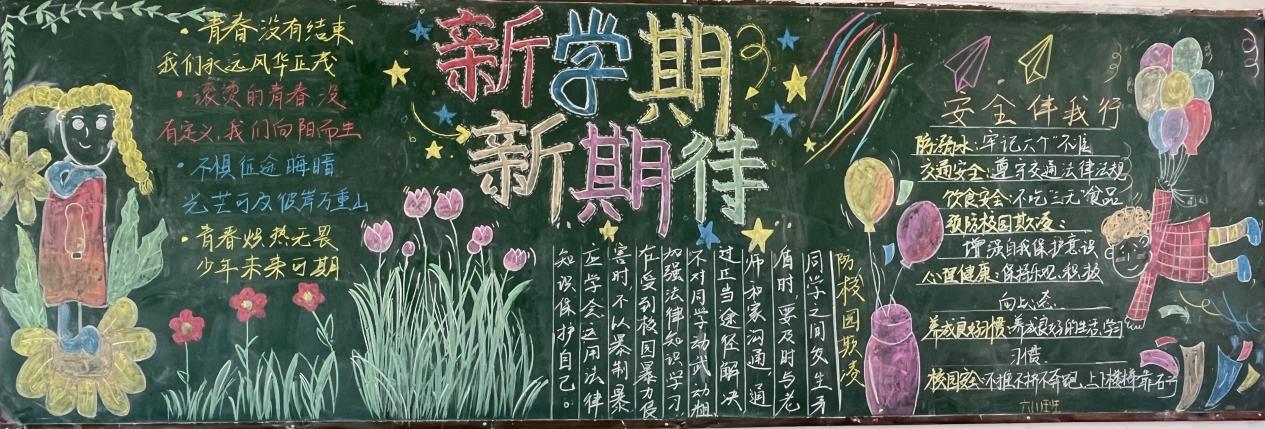 青春没有结束
我们永远风华正茂
滚烫的青春没
有定义,我们向阳而生
不惧征途晦暗
光芒可及彼岸万重山
青春炽热无畏
少年未来可期
新学期
新期待
防校园欺凌
同学之间发生矛
盾时要及时与老
师和家沟通通
过正当途径解决
不对同学动武动粗
加强法律知识学习
在受到校园暴力侵
害时不以暴制暴
应学会运用法律
知识保护自己。
安全伴我行
防溺水:牢记六个"不准
交通安全:遵守交通法律法规
饮食安全:不吃"三无"食品
预防校园欺凌:
增强自我保护意识
心理健康:保持乐观、积极
向上态
养成良好习惯:养成良好的生活、学习
习惯.
校园安全:不推不挤不奔跑,上下楼梯靠右
六(1)班